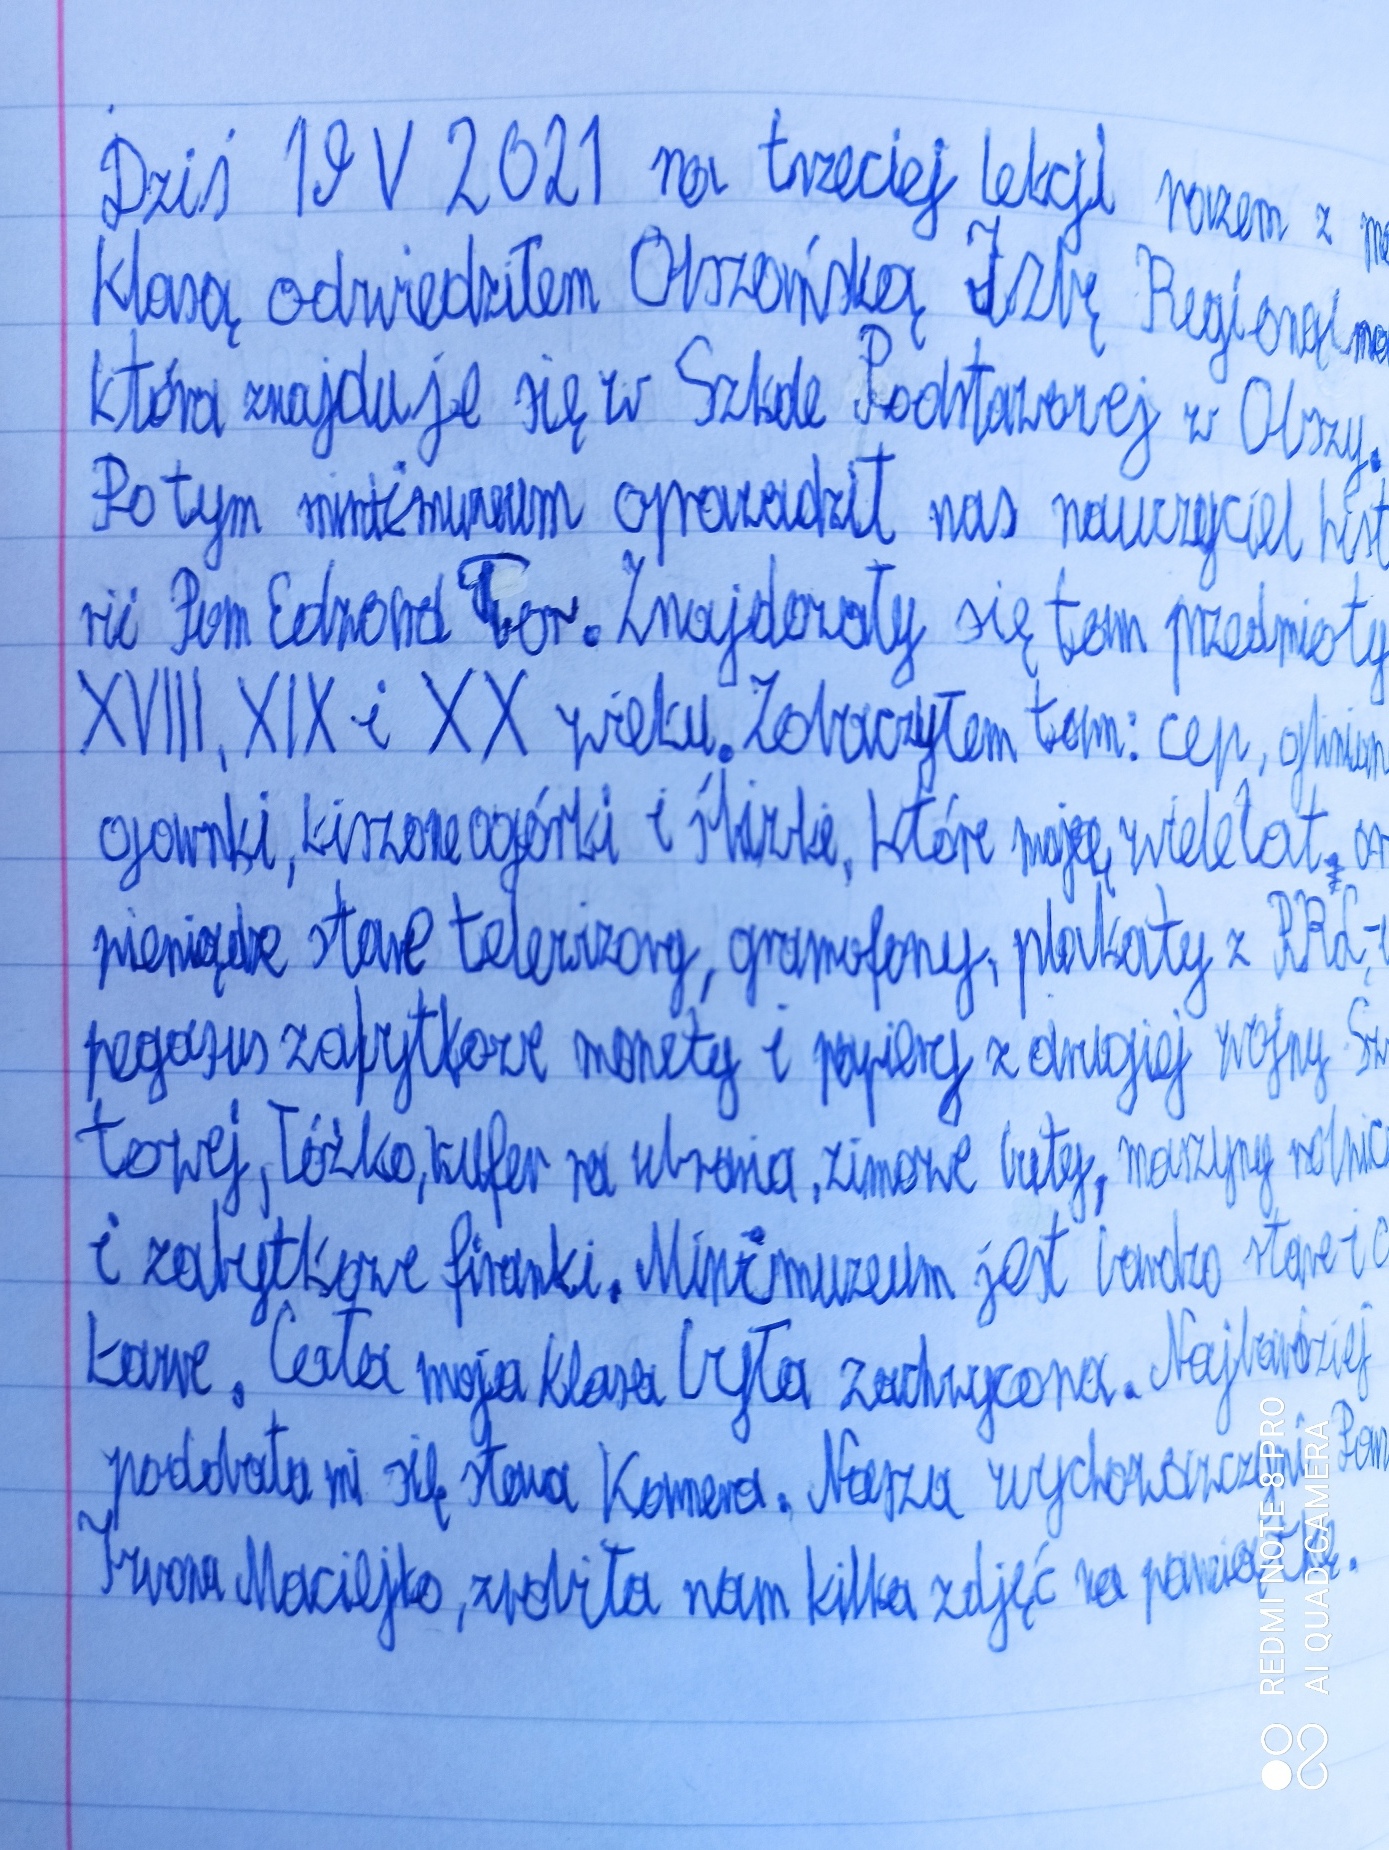 Dziś 19 V 2021 na trzeciej lekcji razem z
klasą odwiedziłem Olszańską Izbę Regional
która znajduje się w Szkole Podstawowej w Olszy.
Po tym mini muzeum oprowadził nas nauczyciel hist
rii Pan Edward Tor. Znajdowały się tam przedmioty
XVIII, XIX i XX wieku. Zobaczyłem tam: cep,
ogórki i śliwki, które mają wiele lat,
pieniądze stare telewizory, gramofony, plakaty z PRL-
pegasus zabytkowe monety i papiery z drugiej wojny
towej, łóżko, kufer na ubrania, zimowe buty, maszyny rolnic
i zabytkowe firanki. Mini muzeum jest bardzo stare i c
kawe. Cała moja klasa była zachwycona. Najbardziej
podobała mi się stara Kamera. Nasza wychowawczyni Pan
Iwona Maciejko, zrobiła nam kilka zdjęć na pamiątkę.
REDMI NOTE 8 PRO
AI QUAD CAMERA